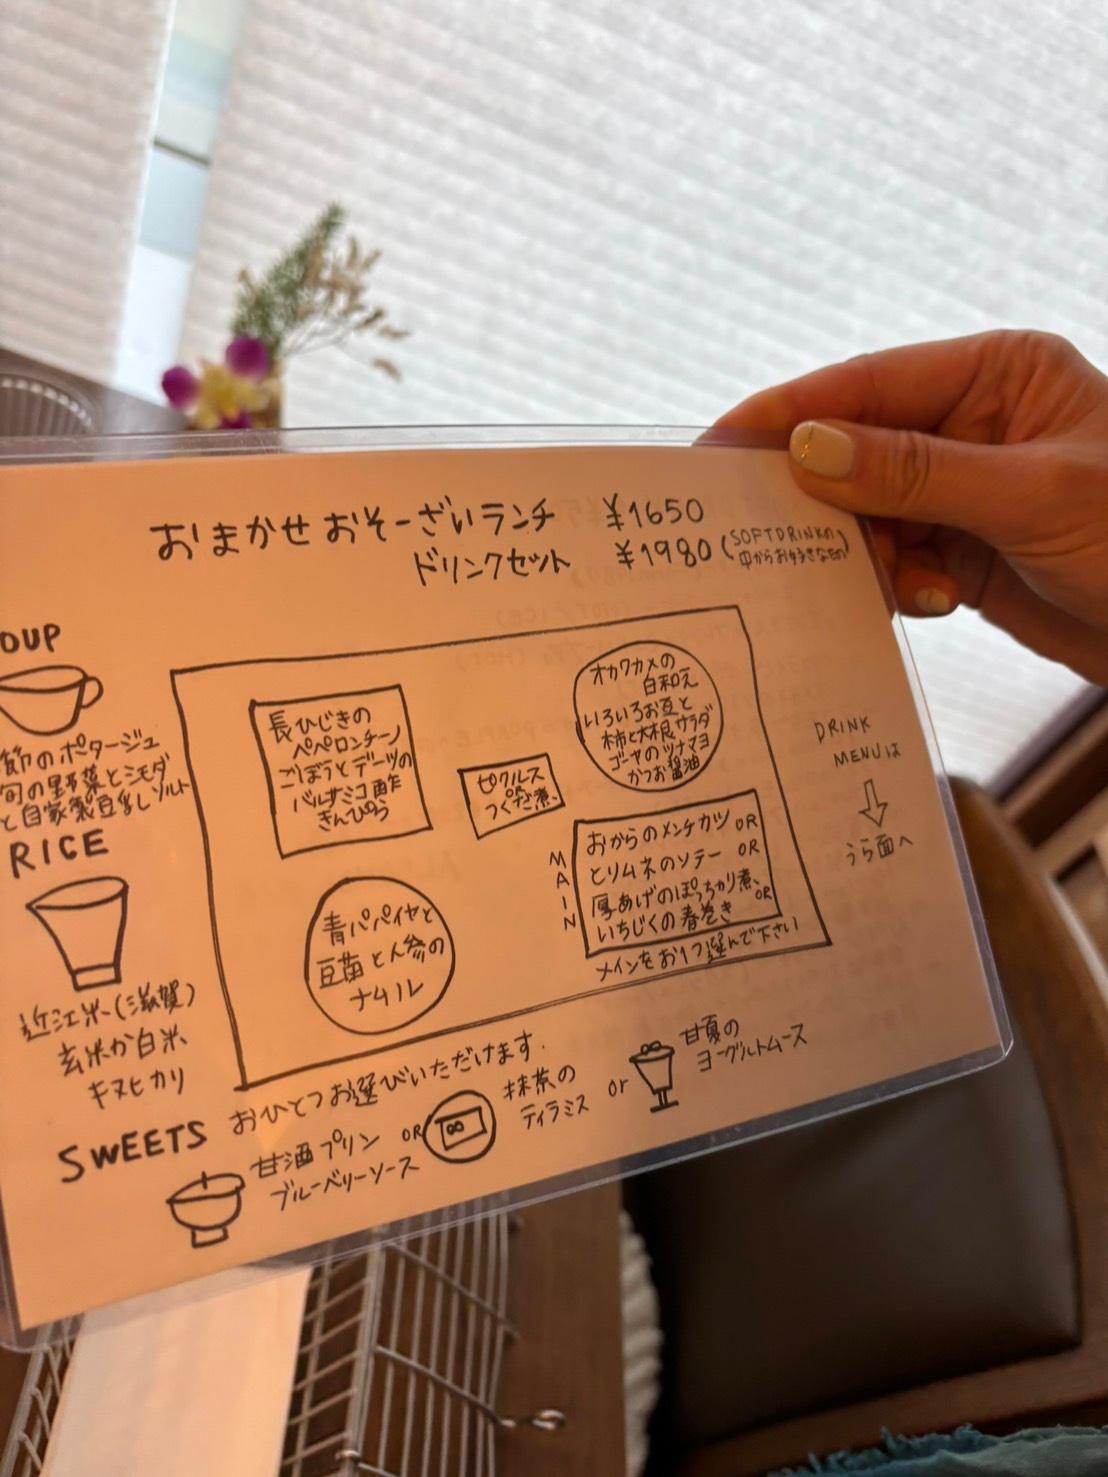 おまかせ おそーざいランチ ¥1650
ドリンクセット ¥1980 (SOFTDRINKの
中からお好きなもの)
OUP
節のポタージュ
旬の野菜と
と自家製豆乳し
RICE
近江米(滋賀)
玄米か白米
キヌヒカリ
長ひじきの
ペペロンチーノ
ごぼうとデーツの
バルサミコ酢
きんぴら
ピクルス
OR
つくだ煮
オカワカメの
白和え
いろいろお豆と
柿と大根サラダ
ゴーヤのツナマヨ
かつお醤油
青パパイヤと
豆苗と人参の
ナムル
MAIN
おからのメンチカツ OR
とりムネのソテー OR
厚あげのぽっちかり煮 OR
いちじくの春巻き
メインをお1つ選んで下さい
DRINK
MENUは
うら面へ
SWEETS おひとつお選びいただけます.
甘酒プリン
ブルーベリーソース
OR
抹茶の
ティラミス
or
甘夏の
ヨーグルトムース